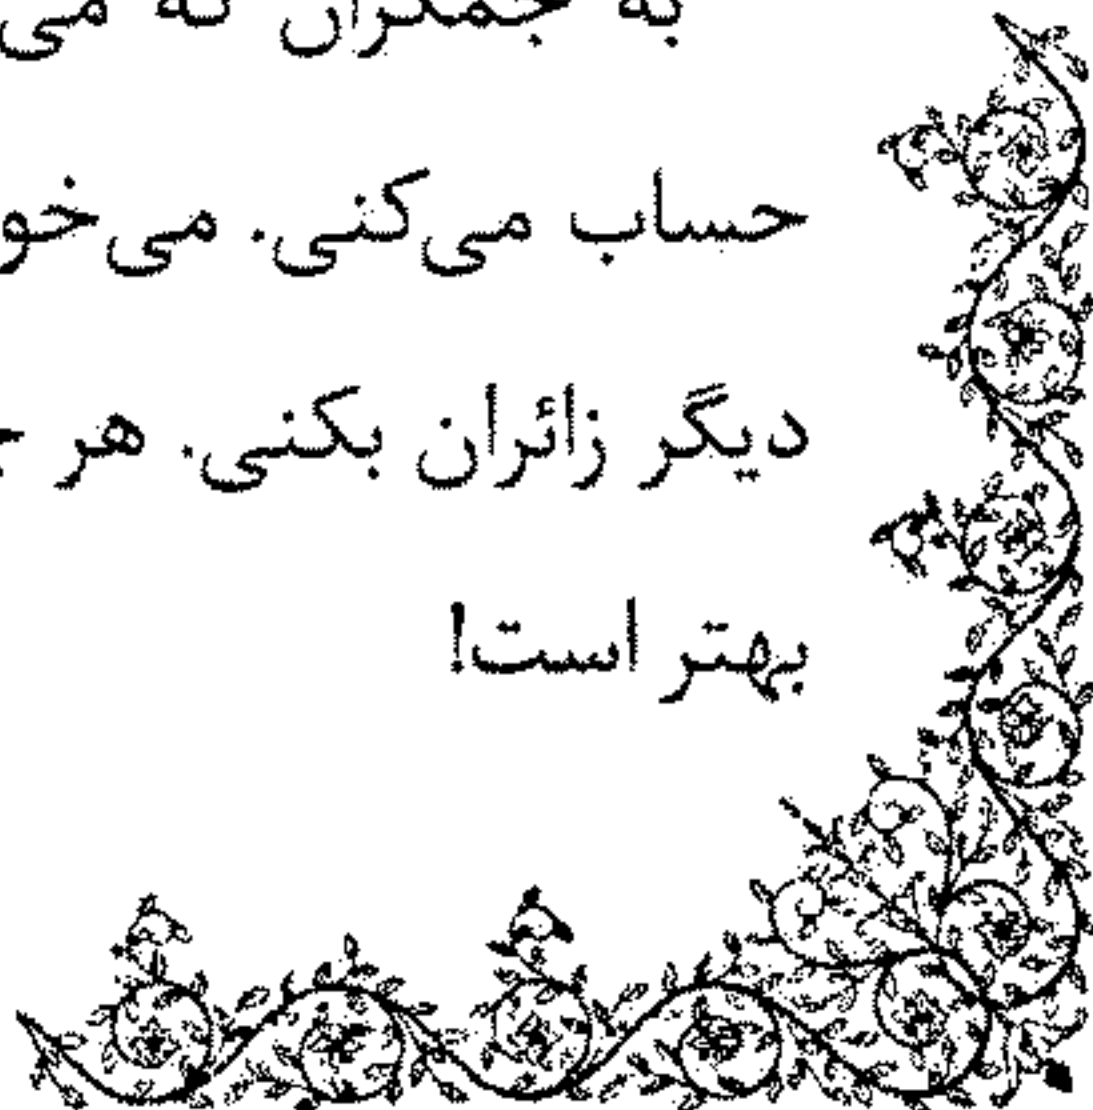 به جمکران که می
حساب می‌کنی. می‌خو
دیگر زائران بکنی. هر
بهتر است!